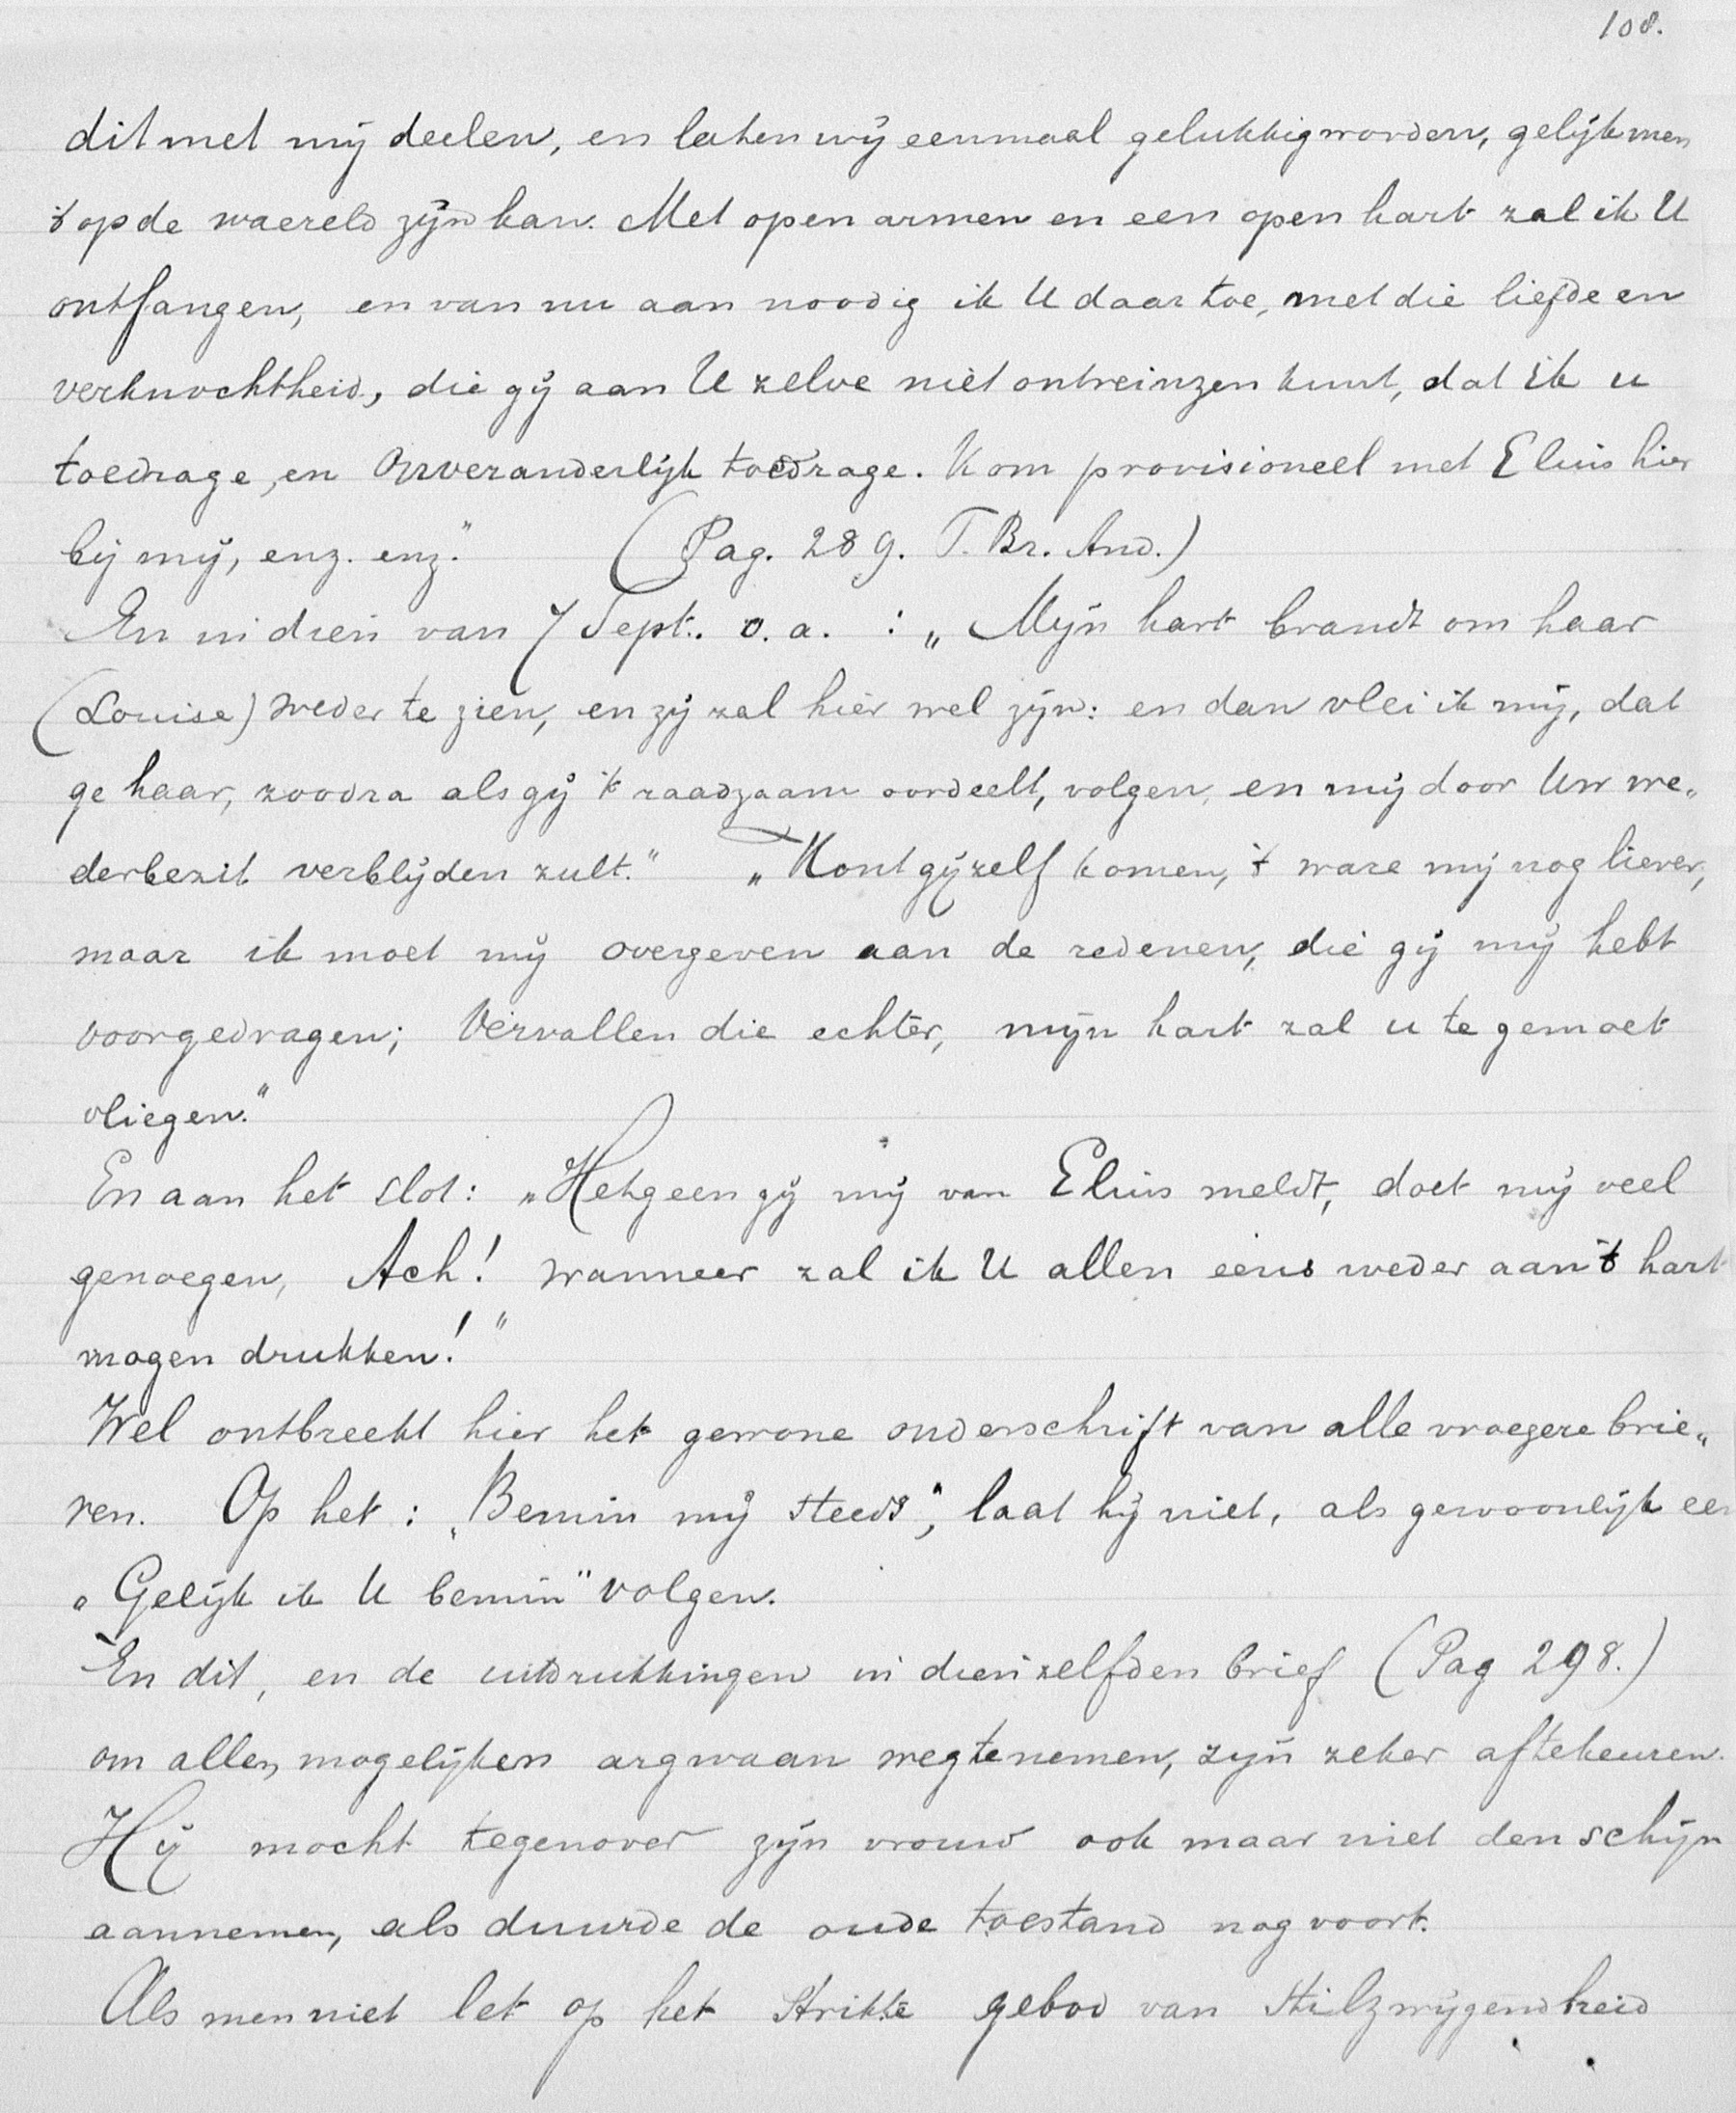 108.
dit met mij deelen, en laten wij eenmaal gelukkig worden, gelijk men
't op de waereld zijn kan. Met open armen en een open hart zal ik U
ontfangen, en van nu aan noodig ik U daar toe, met die liefde en
verknochtheid, die gij aan U zelve niet ontveinzen kunt, dat ik u
toedrage, en Onveranderlijk toedrage. Kom provisioneel met Elius hier
bij mij, enz. enz." (Pag. 289. T. Br. And.)
En in dien van 7 Sept. o. a. : „Mijn hart brandt om haar
(Louise) weder te zien, en zij zal hier wel zijn: en dan vlei ik mij, dat
ge haar, zoodra als gij 't raadzaam oordeelt, volgen, en mij door Uw we„
derbezit verblijden zult." „Kont gij zelf komen, 't ware mij nog liever,
maar ik moet mij overgeven aan de redenen, die gij mij hebt
voorgedragen; Vervallen die echter, mijn hart zal u te gemoet
vliegen."
En aan het slot: „Hetgeen gij mij van Elius meldt, doet mij veel
genoegen, Ach! wanneer zal ik U allen eens weder aan 't hart
mogen drukken!"
Wel ontbreekt hier het gewone onderschrift van alle vroegere brie„
ven. Op het: „Bemin mij steeds", laat hij niet, als gewoonlijk een
„Gelijk ik U bemin" volgen.
En dit, en de uitdrukkingen in dienzelfden brief (Pag 298.)
om allen mogelijken argwaan wegtenemen, zijn zeker aftekeuren.
Hij mocht tegenover zijn vrouw ook maar niet den schijn
aannemen, als duurde de oude toestand nog voort.
Als men niet let op het strikte gebod van stilzwijgendheid